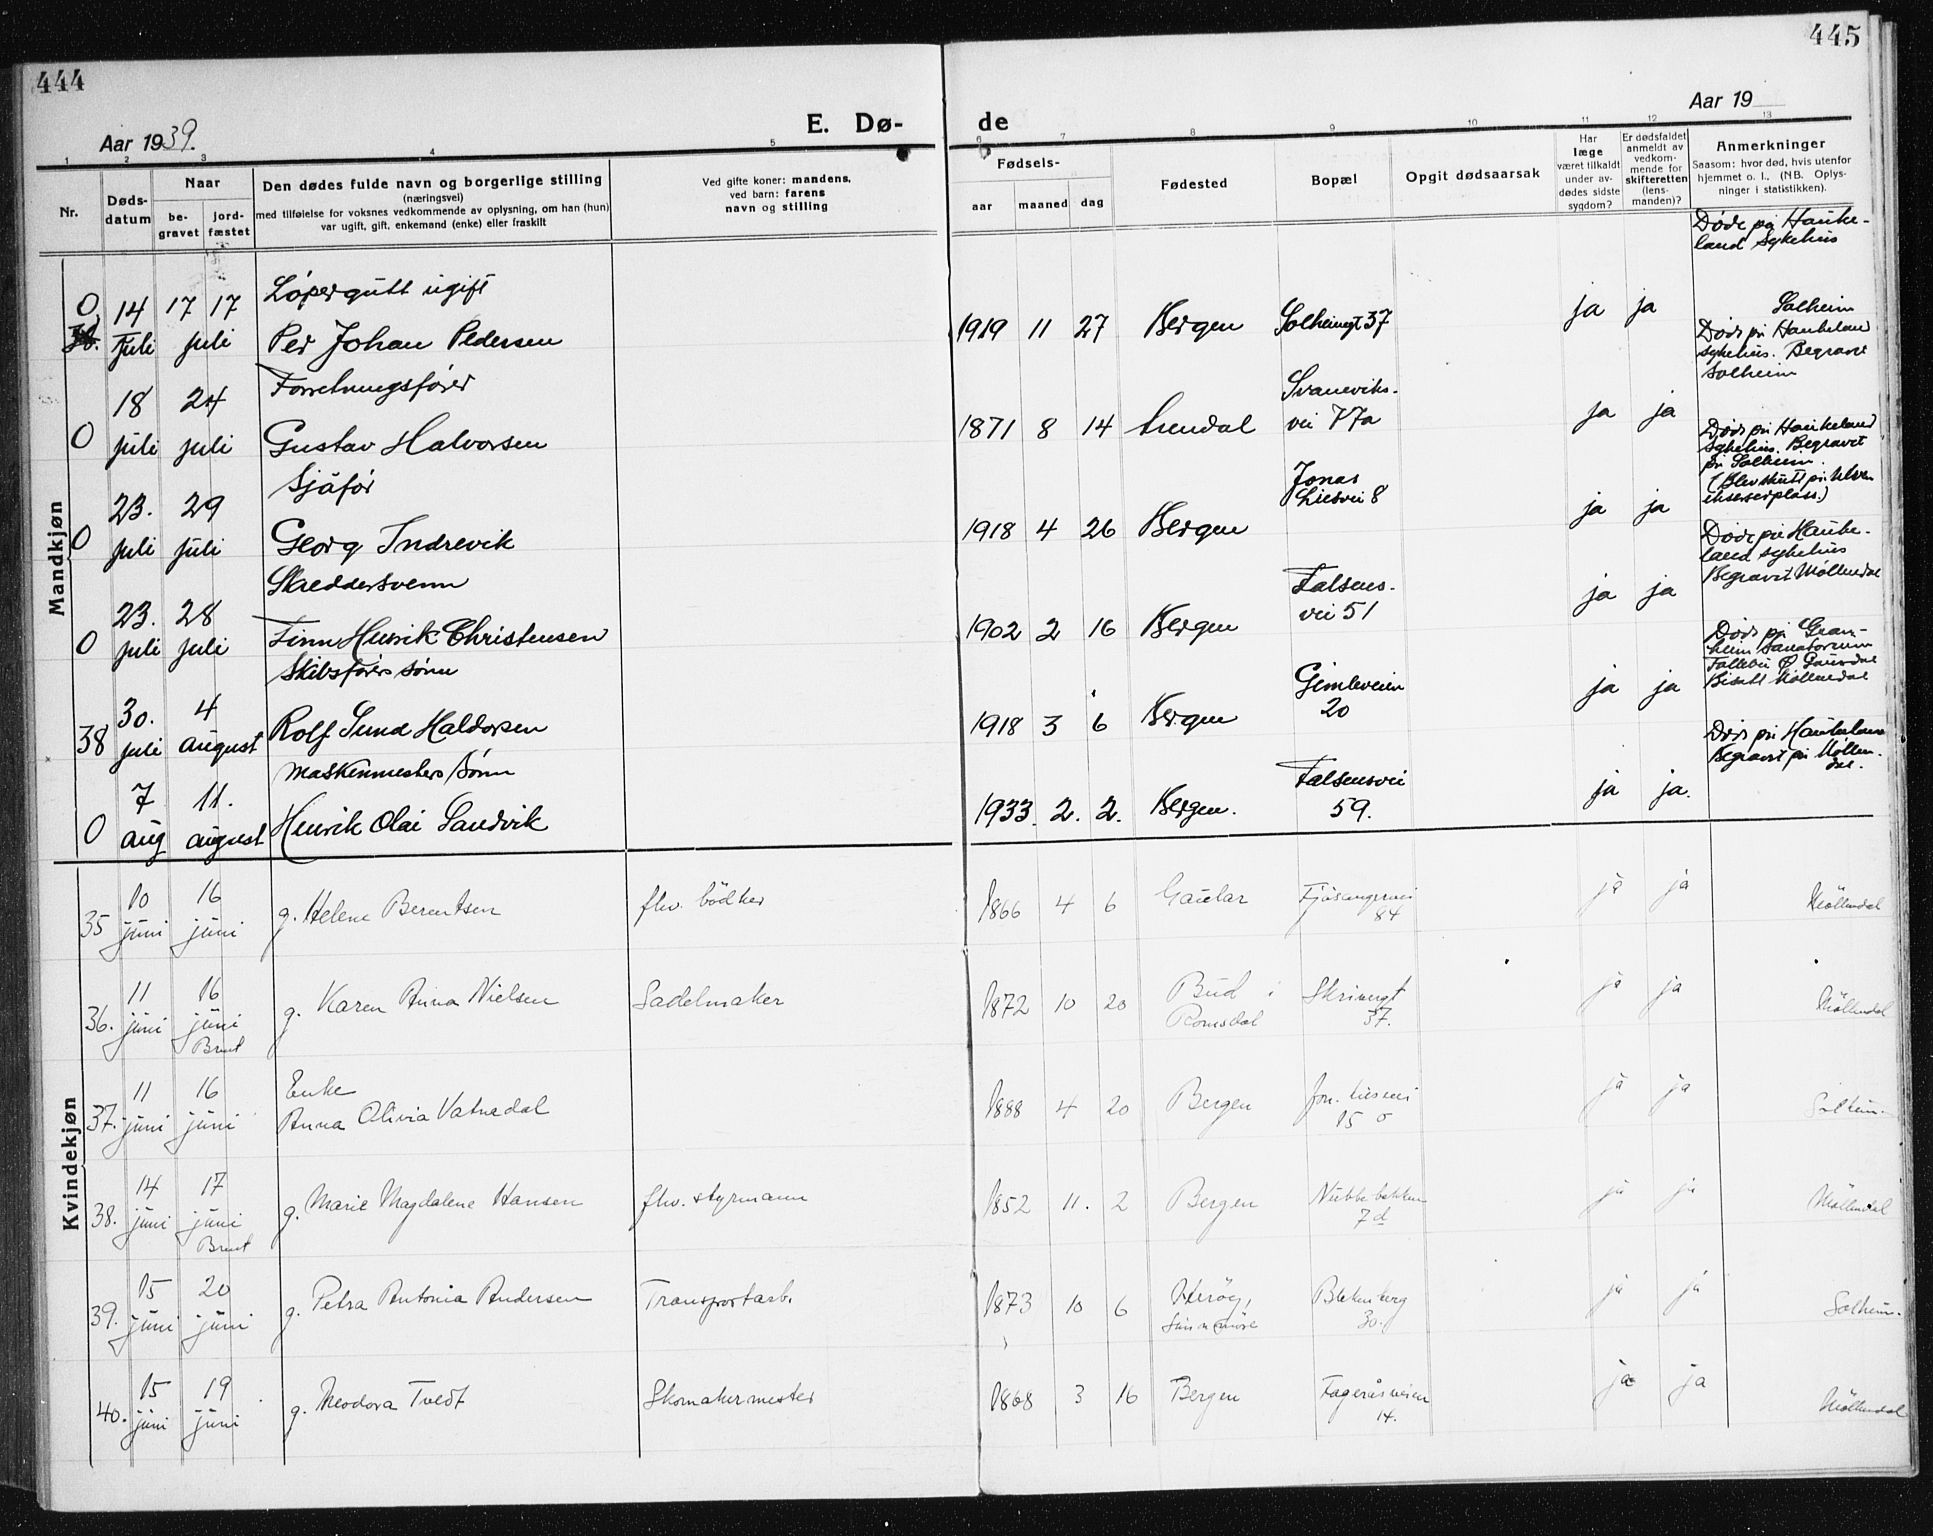 444
445
Aar 1939.
E. Dø-
de
Aar 19
1 2 3 4 5
7 8 9 10 11 12 13
Nr.
Døds-
datum
Naar
be-
gravet
jord-
fæstet
Den dødes fulde navn og borgerlige stilling
(næringsvei)
med tilføielse for voksnes vedkommende av oplysning, om han (hun)
var ugift, gift, enkemand (enke) eller fraskilt
Ved gifte koner: mandens,
ved barn: farens
navn og stilling
Fødsels-
aar maaned dag
Fødested
Bopæl
Opgit dødsaarsak
Har
læge
været tilkaldt
under av-
dødes sidste
sygdom?
Er dødsfaldet
anmeldt av
vedkom-
mende for
skifteretten
(lens-
manden)?
Anmerkninger
Saasom: hvor død, hvis utenfor
hjemmet o. l., (NB. Oplys-
ninger i statistikken).
Mandkjøn
Døde på Hauke-
land Sykehus
Løpergutt ugift
0 14 17 17
Juli juli Per Johan Pedersen 1919 11 27 Bergen Solheimgt 37 ja ja Solheim
Forretningsfører
18 24 Svaneviks-
Døde på Haukeland
sykehus. Begravet
Solheim
0 juli juli Gustav Halvorsen 1871 8 14 Arendal vei 77a ja ja
Sjåfør
23. 29 Jonas
Liesvei 8
Døde på Haukeland
Sykehus. Begravet
på Solheim.
(Blev skutt på Ulven
ekserserplass.)
0 juli juli Georg Indrevik 1918 4 26 Bergen ja ja
Skreddersvenn
23. 28 Falsens-
vei 51
Døde på Hauke-
land sykehus
Begravet Møllendal
0 juli juli Finn Henrik Christensen 1902 2 16 Bergen ja ja
Skibsførers sønn
30. 4 Gimleveien
20
Døde på Gran-
heim Sanatorium
Follebu Ø. Gausdal
Bisatt Møllendal
38 juli august Rolf Sund Haldorsen 1918 3 6 Bergen ja ja
Maskinmesters sønn
7 11. Falsensvei
59.
Døde på Haukeland
Begravet på Møllen-
dal.
0 aug august Henrik Olai Sandvik 1933. 2. 2. Bergen. ja ja.
Kvindekjøn
35 10 juni 16 juni g. Helene Berentsen fhv. bødker 1866 4 6 Gaular Fjøsangervei 84 ja ja Møllendal
36. 11 juni 16 juni Brent g. Karen Anna Nielsen Sadelmaker 1872 10 20 Bud i Romsdal Skivergt 37. ja ja Møllendal
37. 11 juni 16 juni Enke Anna Olivia Vatnedal 1888 4 20 Bergen Jon. Liesvei 15 o ja ja Solheim.
38. 14 juni 17 juni Brent g. Marie Magdalene Hansen fhv. styrmann 1852 11. 2 Bergen Nubbebakken 7d ja ja Møllendal
39. 15 juni 20 juni g. Petra Antonia Andersen Transportarb. 1873 10 6 Herøy, Sunnmøre Blekenberg 30. ja ja Solheim.
40. 15 juni 19 juni g. Theodora Tvedt Skomakermester 1868 3 16 Bergen Fageråsveien 14. ja ja Møllendal